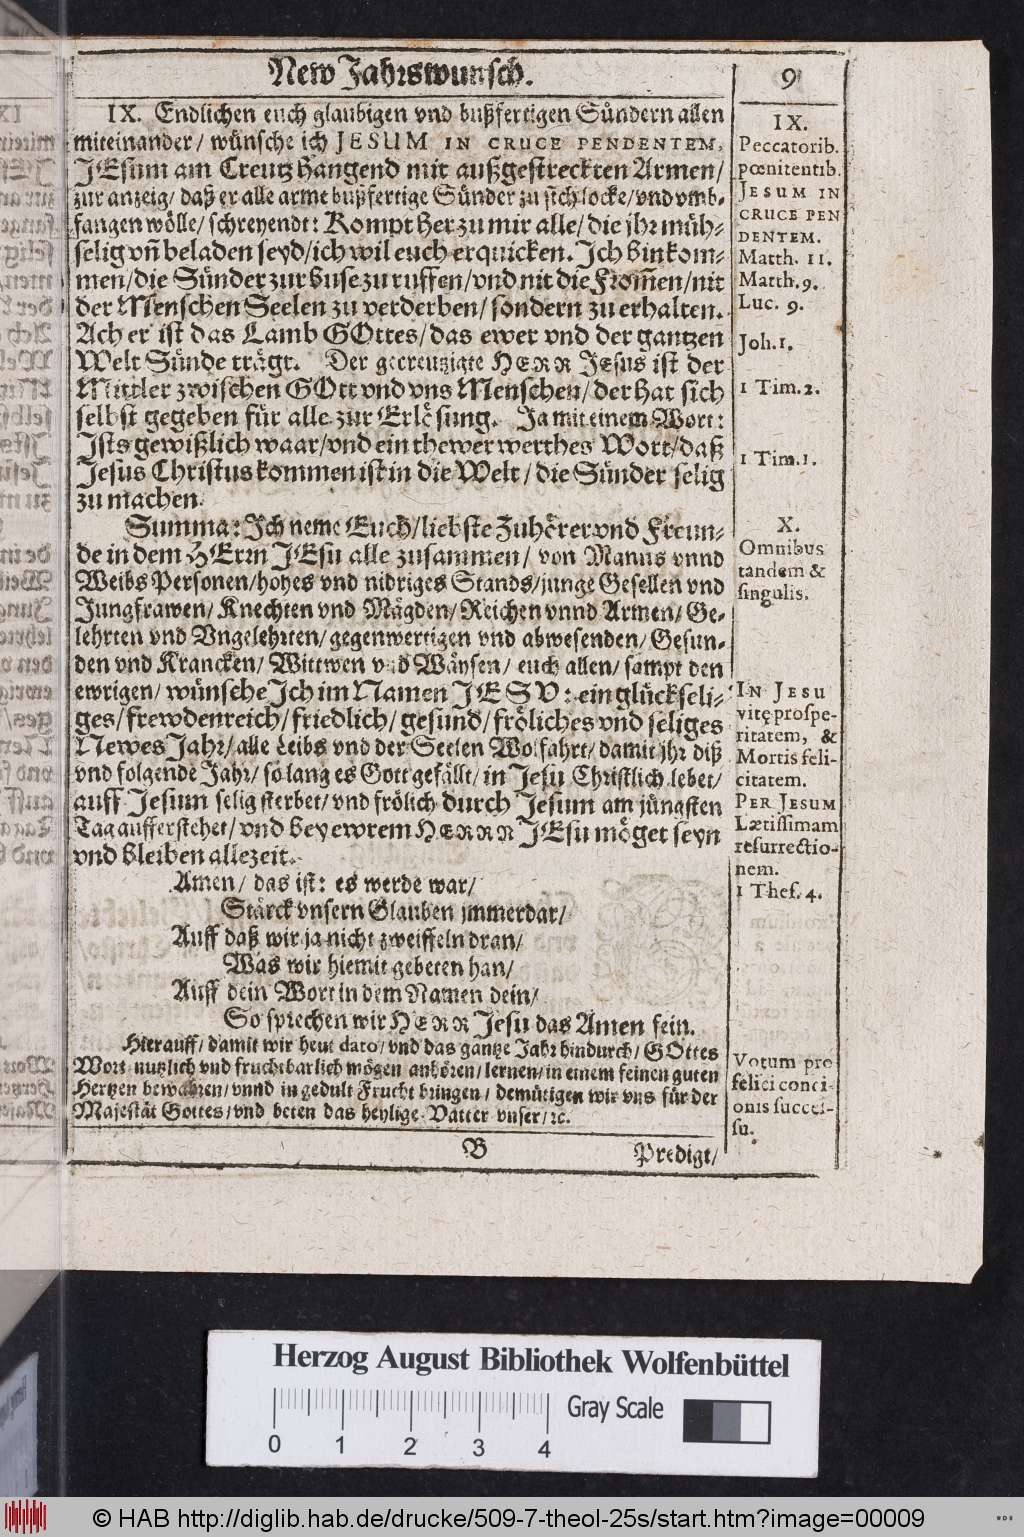 New Jahrswunsch.
9
IX. Endlichen euch glaubigen vnd bußfertigen Sündern allen
miteinander/ wünsche ich JESUM IN CRUCE PENDENTEM,
JEsum am Creutz hangend mit außgestreckten Armen/
zur anzeig/ daß er alle arme bußfertige Sünder zu sich locke/ vnd vmb-
fangen wölle/ schreyendt: Kompt her zu mir alle/ die jhr müh-
selig vñ beladen seyd/ ich wil euch erquicken. Ich bin kom-
men/ die Sünder zur buse zu ruffen/ vnd nit die From̃en/ nit
der Menschen Seelen zu verderben/ sondern zu erhalten.
Ach er ist das Lamb GOttes/ das ewer vnd der gantzen
Welt Sünde trägt. Der gecreutzigte HERR JEsus ist der
Mittler zwischen GOtt vnd vns Menschen/ der hat sich
selbst gegeben für alle zur Erlösung. Ja mit einem Wort:
Ists gewißlich waar/ vnd ein thewer werthes Wort/ daß
Jesus Christus kommen ist in die Welt/ die Sünder selig
zu machen.
Summa: Ich neme Euch/ liebste Zuhörer vnd Freun-
de in dem HErrn JEsu alle zusammen/ von Manns vnnd
Weibs Personen/ hohes vnd nidriges Stands/ junge Gesellen vnd
Jungfrawen/ Knechten vnd Mägden/ Reichen vnnd Armen/ Ge-
lehrten vnd Vngelehrten/ gegenwertigen vnd abwesenden/ Gesun-
den vnd Krancken/ Wittwen vnd Wäysen/ euch allen/ sampt den
ewrigen/ wünsche Ich im Namen JESV: ein glückseli-
ges/ frewdenreich/ friedlich/ gesund/ fröliches vnd seliges
Newes Jahr/ alle Leibs vnd der Seelen Wolfahrt/ damit jhr diß
vnd folgende Jahr/ so lang es Gott gefällt/ in Jesu Christlich lebet/
auff Jesum selig sterbet/ vnd frölich durch Jesum am jüngsten
Tag aufferstehet/ vnd bey ewrem HERRN JEsu möget seyn
vnd bleiben allezeit.
Amen/ das ist: es werde war/
Stärck vnsern Glauben jmmerdar/
Auff daß wir ja nicht zweiffeln dran/
Was wir hiemit gebeten han/
Auff dein Wort in dem Namen dein/
So sprechen wir HERR Jesu das Amen fein.
Hierauff/ damit wir heut dato/ vnd das gantze Jahr hindurch/ GOttes
Wort nutzlich vnd fruchtbarlich mögen anhören/ lernen/ in einem feinen guten
Hertzen bewahren/ vnnd in gedult Frucht bringen/ demütigen wir vns für der
Majestät Gottes/ vnd beten das heylige Vatter vnser/ ꝛc.
B
Predigt/
IX.
Peccatorib.
pœnitentib.
JESUM IN
CRUCE PEN
DENTEM.
Matth. 11.
Matth. 9.
Luc. 9.
Joh. 1.
1 Tim. 2.
1 Tim. 1.
X.
Omnibus
tandem &
singulis.
IN JESU
vitę prospe-
ritatem, &
Mortis feli-
citatem.
PER JESUM
Lætissimam
resurrectio-
nem.
1 Thes. 4.
Votum pro
felici conci-
onis succes-
su.
Herzog August Bibliothek Wolfenbüttel
Gray Scale
0 1 2 3 4
© HAB http://diglib.hab.de/drucke/509-7-theol-25s/start.htm?image=00009